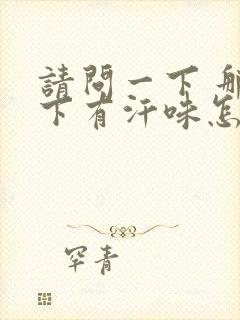 請問一下
下有汗味怎
罕青